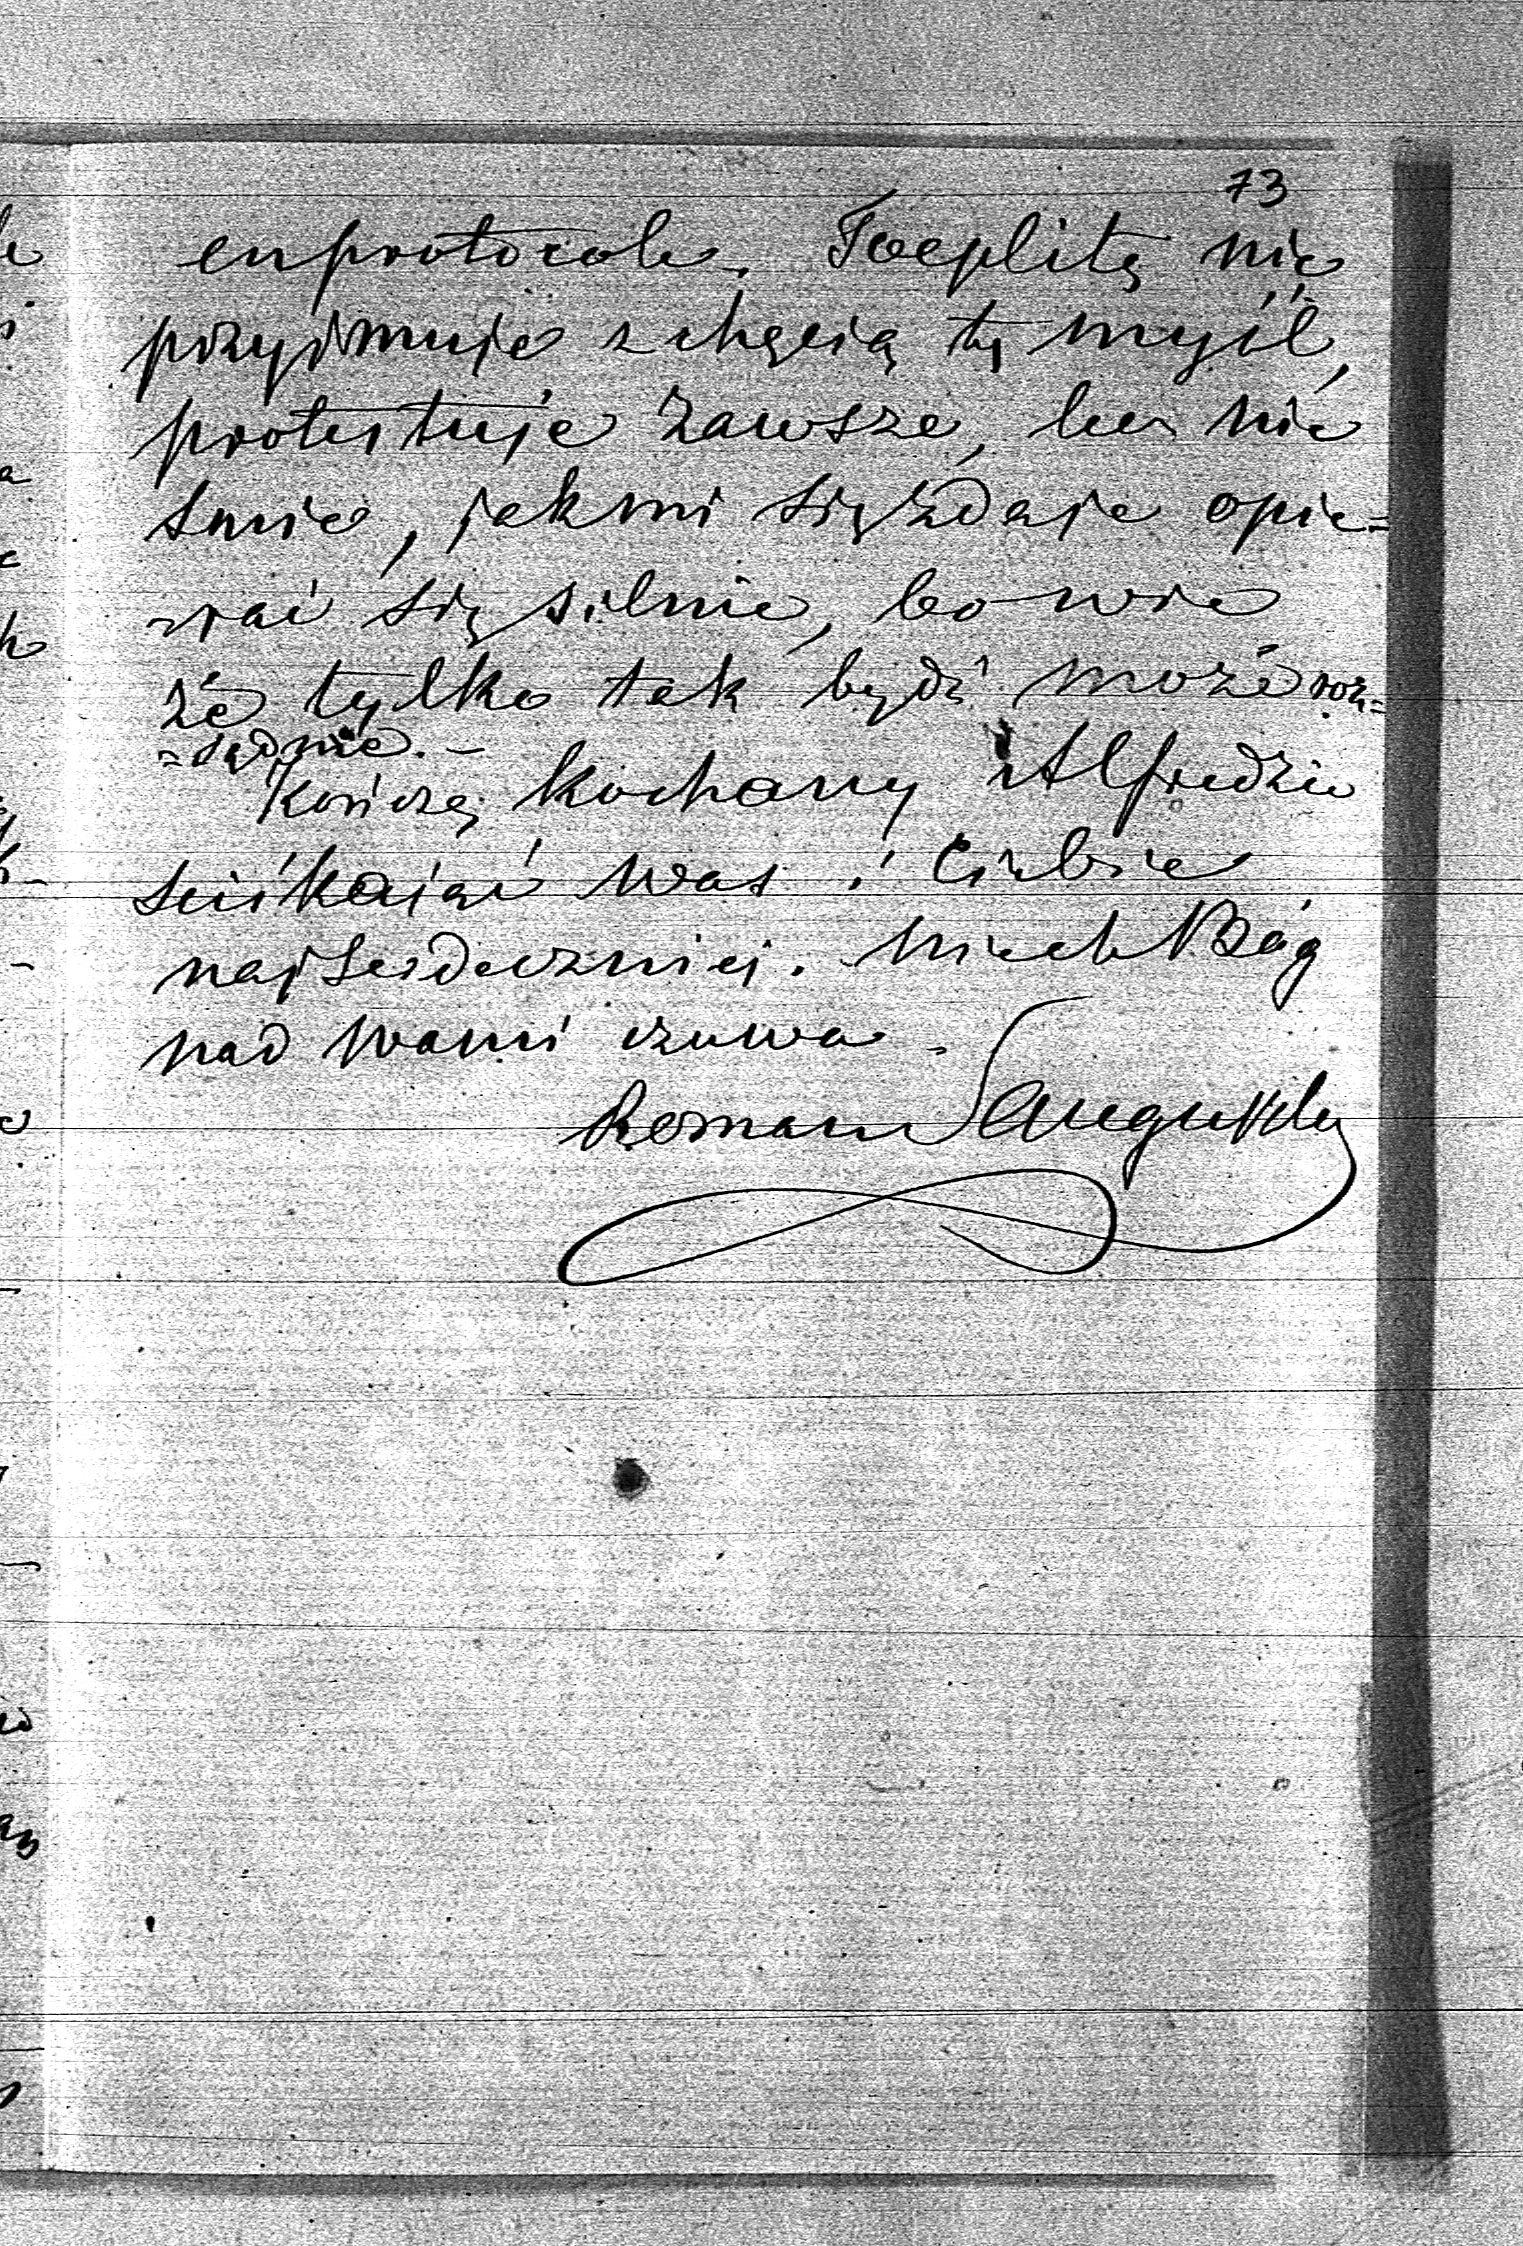 73
en protocole. Toeplitz nie
przyjmuje z chęcią tę myśl,
protestuje zawsze, lecz nie
śmie, jak mi się zdaje opie=
rać się silnie, bo wie
że tylko tak bydź może roz=
=sądnie. –
Kończę kochany Alfredzie
ściskając Was i Ciebie
najserdeczniej. Niech Bóg
nad Wami czuwa.
Roman Sanguszko